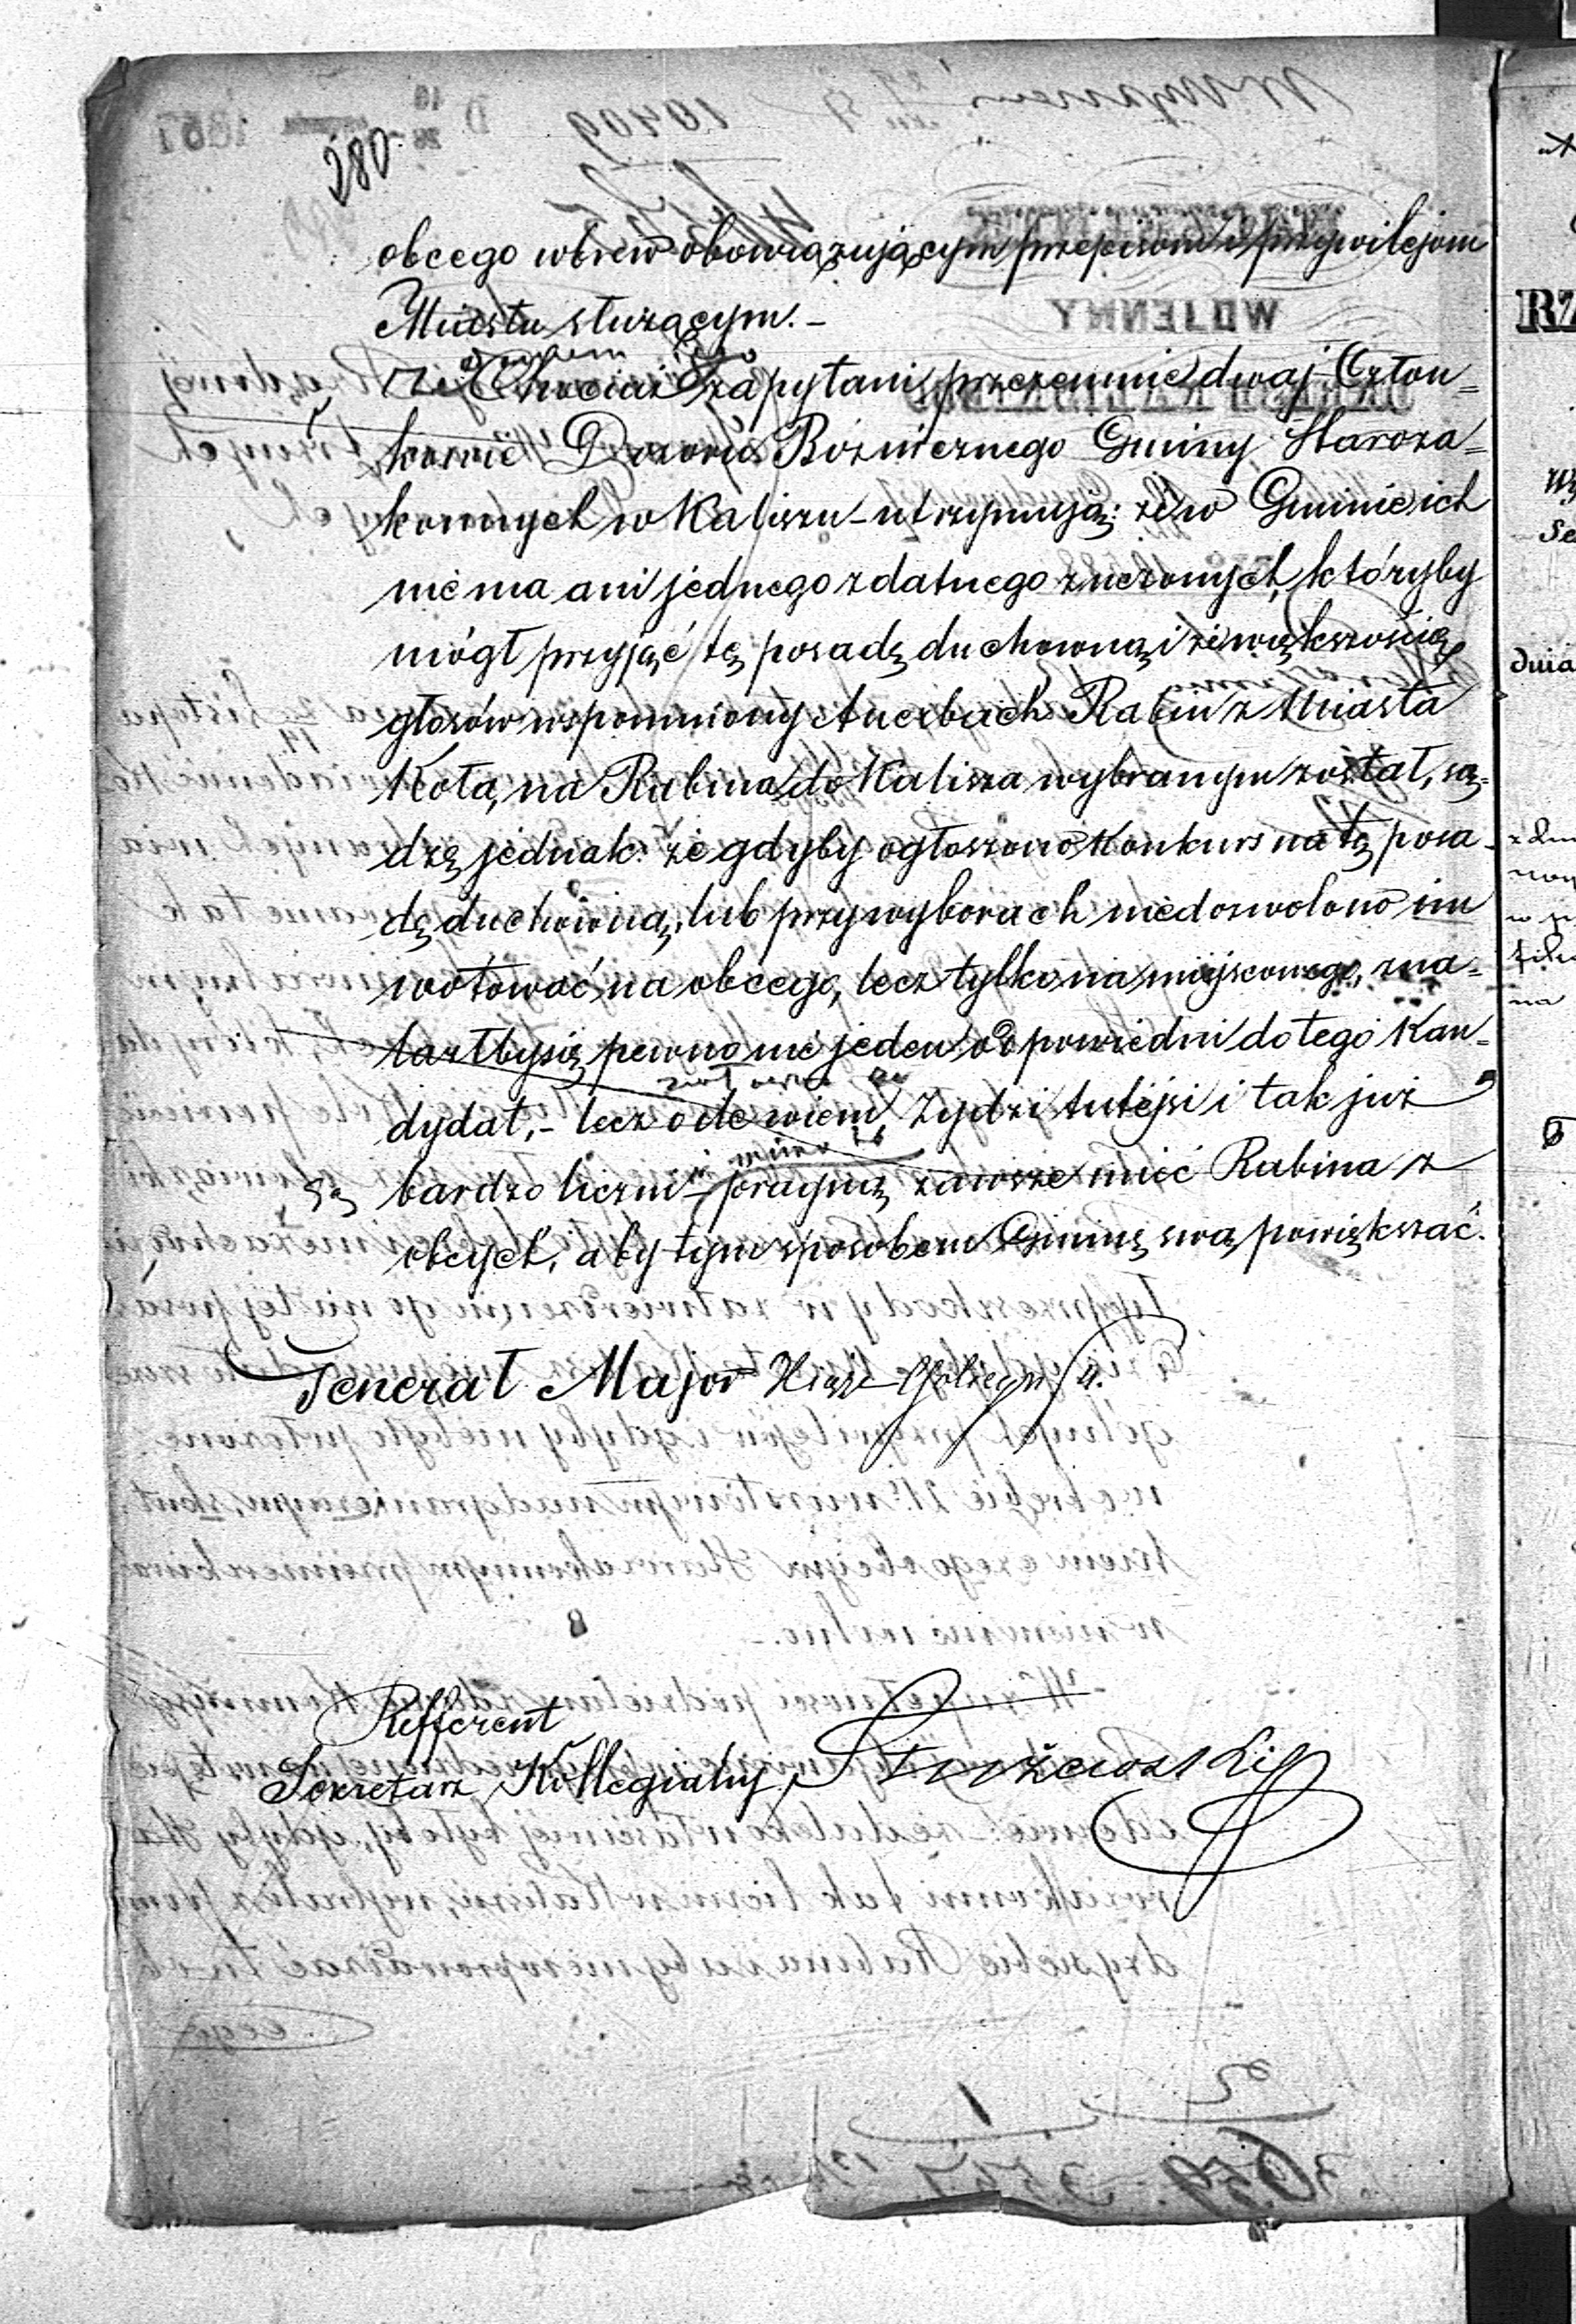 280
obcego wbrew obowiązującym przepisom i przywilejom
Miastu służącym. -
Chociaż zapytani przezemnie dwaj Człon=
kowie Dozoru Bożniczego Gminy Staroza=
konnych w Kaliszu - utrzymują: że w Gminie ich
nie ma ani jednego zdatnego z uczonych, któryby
mógł przyjąć tę posadę duchowną i że większością
głosów wspomniony Auerbach Rabin z Miasta
Koła, na Rabina do Kalisza wybranym został, są=
dzę jednak: że gdyby ogłoszono Konkurs na tę posa=
dę duchowną, lub przy wyborach niedozwolono im
wotować na obcego, lecz tylko na miejscowego, zna=
lazłbysię pewno nie jeden odpowiedni do tego Kan=
dydat, - lecz o ile wiem, Żydzi tutejsi i tak już
są bardzo liczni - pragną zawsze mieć Rabina z
obcych, aby tym sposobem Gminę swą powiększać.
Jenerał Major Xiąże
Refferent
Sekretarz Kollegialny